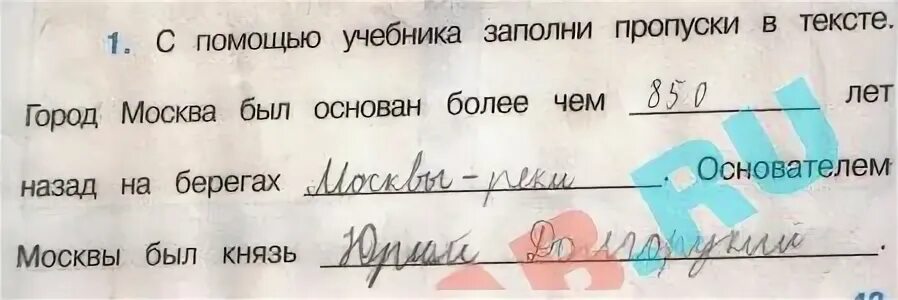 1. С помощью учебника заполни пропуски в тексте.
Город Москва был основан более чем 850 лет
назад на берегах Москвы-реки. Основателем
Москвы был князь Юрий Долгорукий.